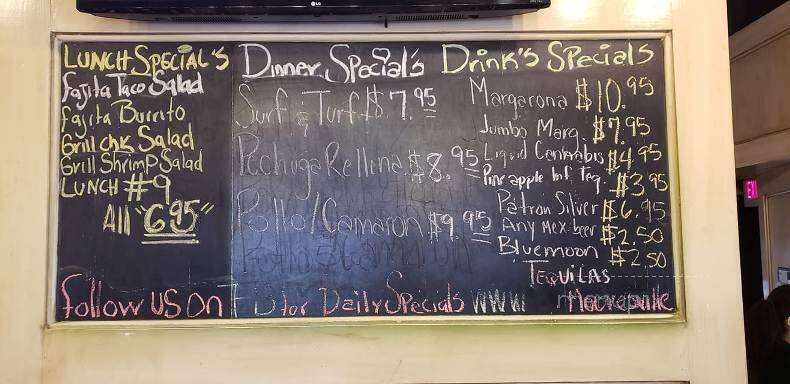 LG
LUNCH SPECIAL'S
Fajita Taco Salad
Fajita Burrito
Grill chk Salad
Grill Shrimp Salad
LUNCH #9
All "6.95"
Dinner Special's
Surf & Turf $7.95
Pechuga Rellina $8.95
Pollo/Camaron $9.95
Drink's Specials
Margarona $10.95
Jumbo Marg. $7.95
$4.95
Pineapple Inf Teq. $3.95
Patron Silver $6.95
Any Mex beer $2.50
Bluemoon $2.50
TEQUILAS
Follow us on for Daily Specials www